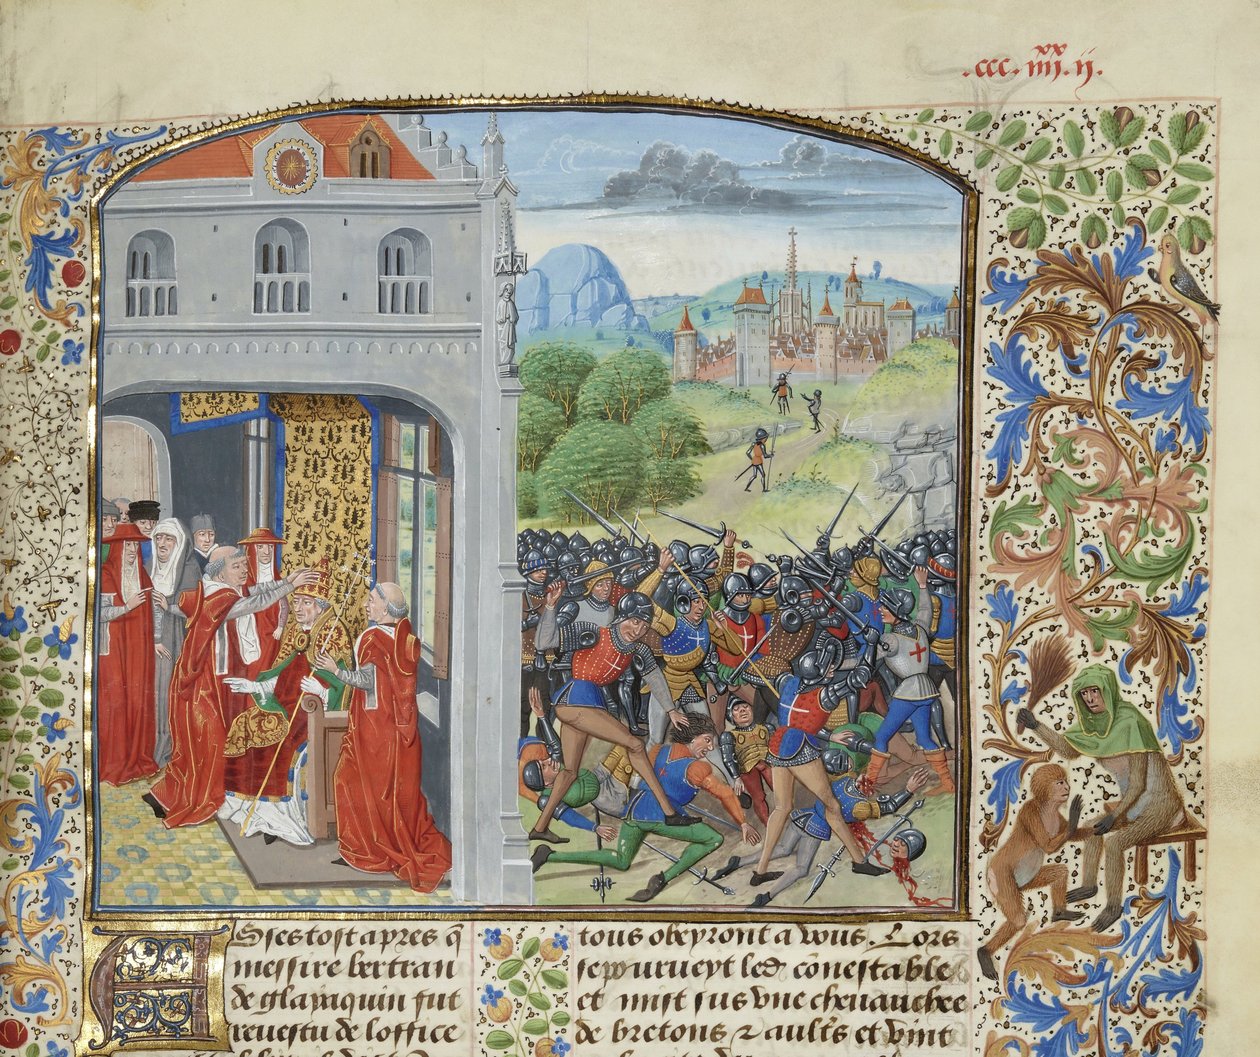 .ccc. iiij.xx ij.
Asses tost apres q̃
messire bertran
de glayaquin fut
revestu de l office
tous obeyront a vous. Lors
se pourueyt led. cõnestable
et mist sus vne cheuauchee
de bretons ⁊ aultr̃s et vint